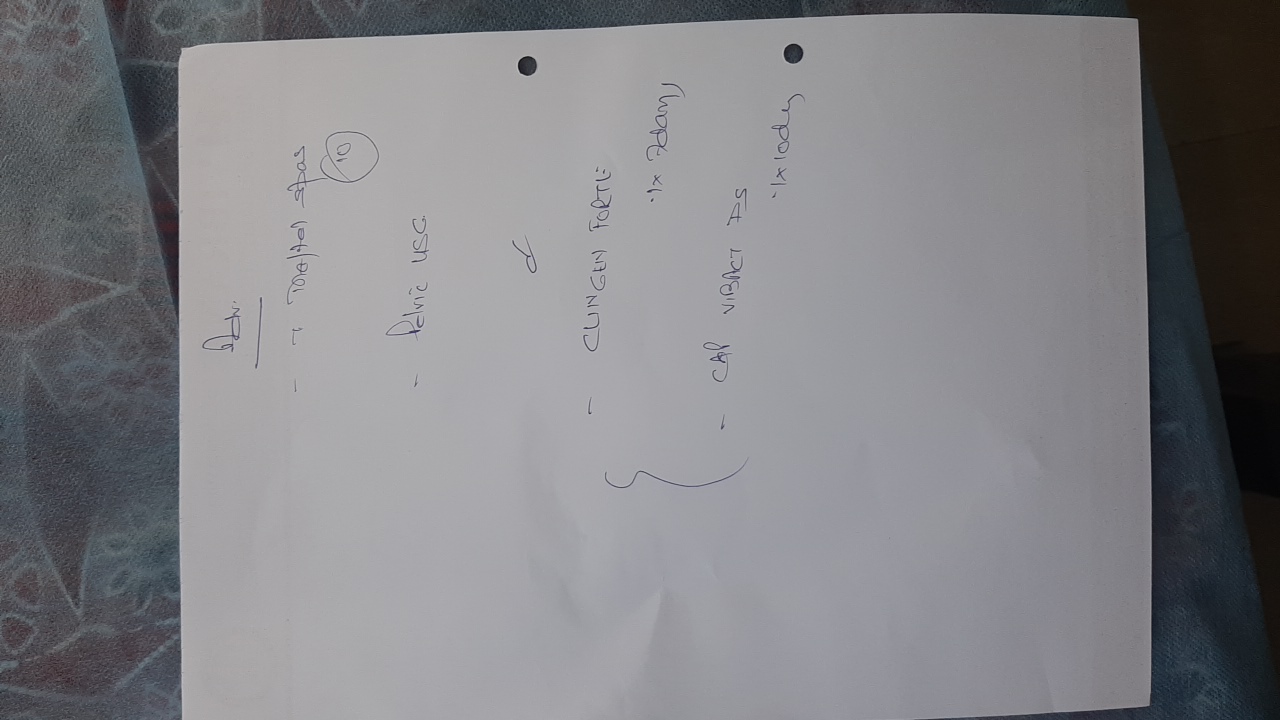 Adv.
- T Meftal spas
10
- Pelvic USG
- CLINGEN FORTE
1x 7days
- CAP VIBACT DS
1x10dy